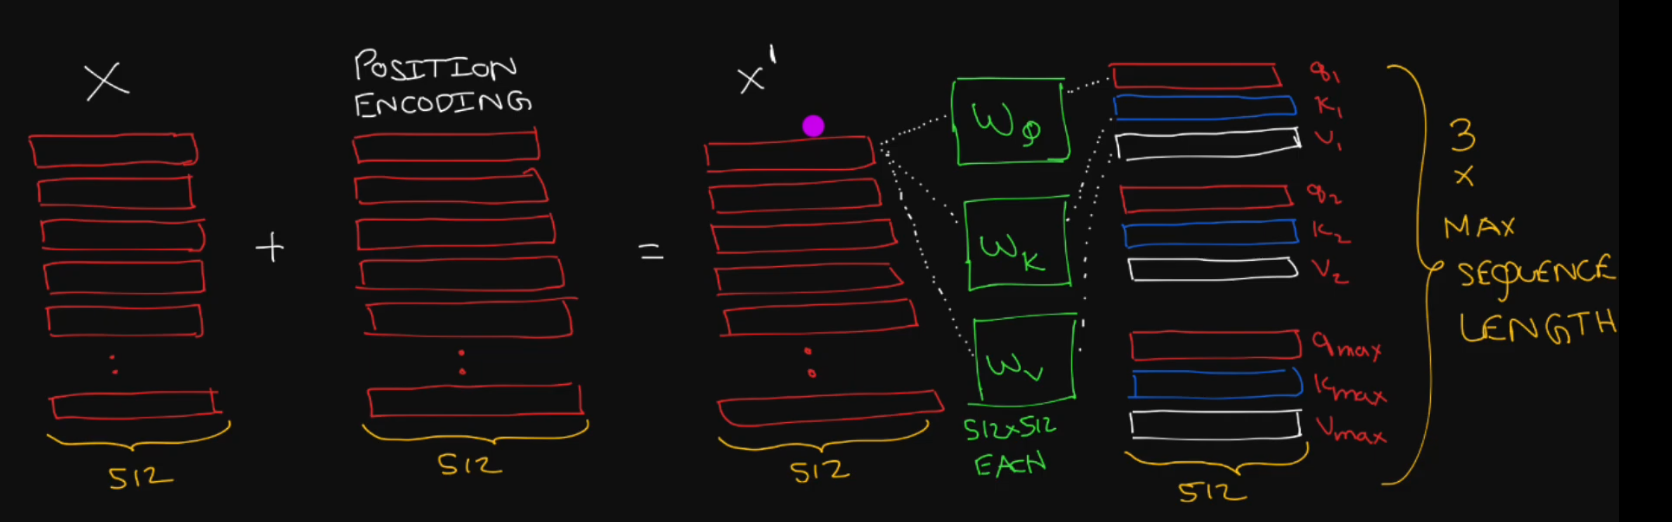 X
POSITION
ENCODING
X'
+
=
512
512
512
WQ
WK
WV
512x512
EACH
q1
K1
V1
q2
K2
V2
qmax
Kmax
Vmax
512
3
x
MAX
SEQUENCE
LENGTH